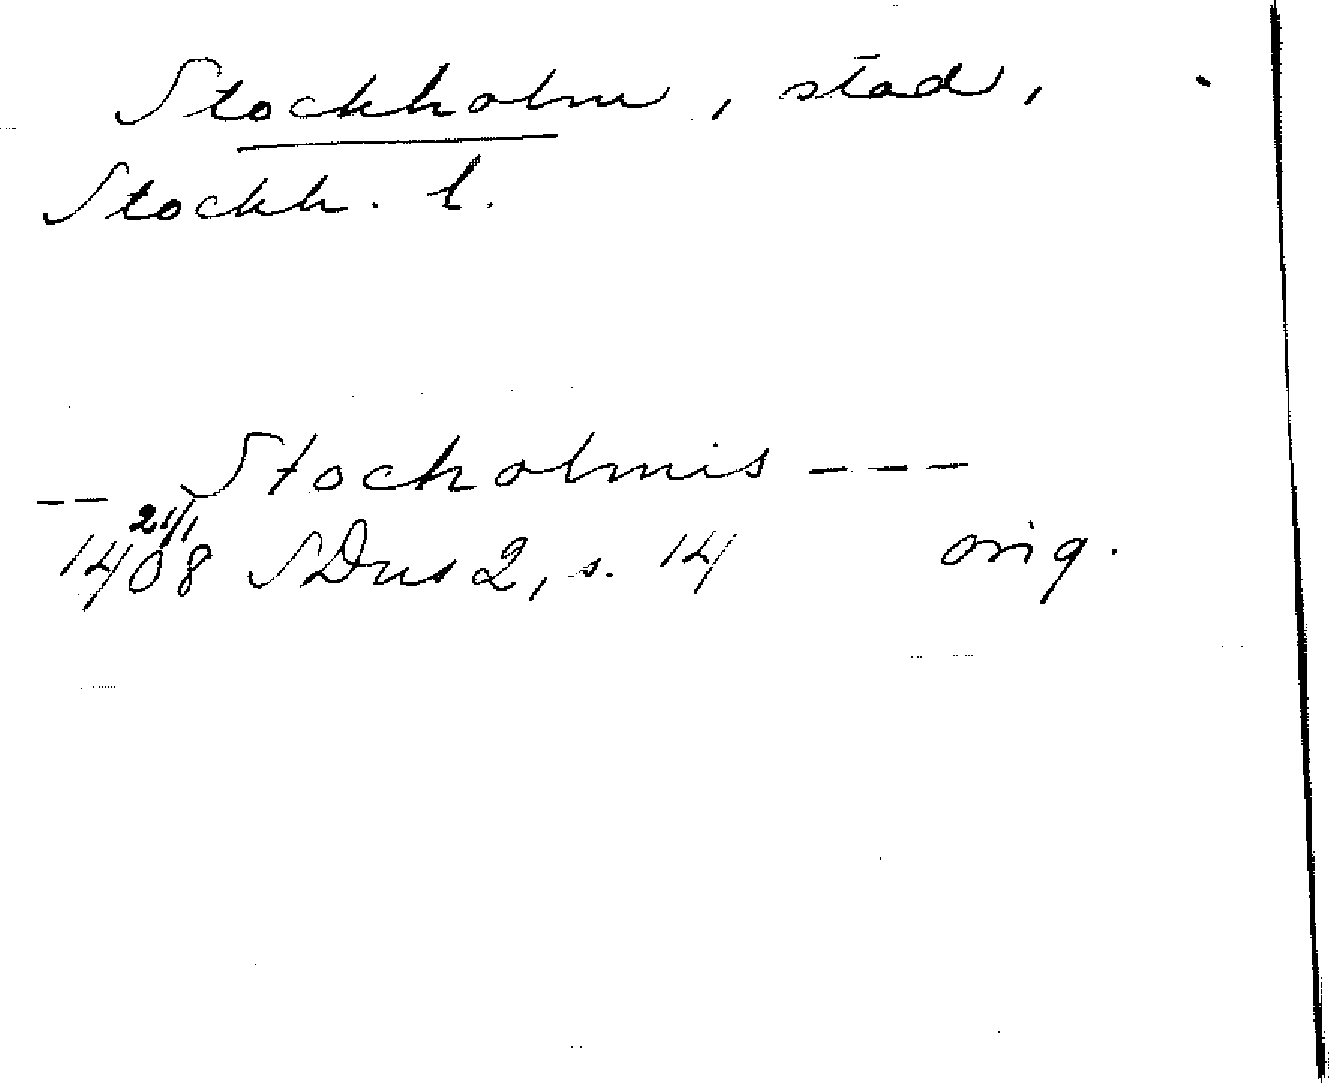 Stockholm, stad,
Stockh. l.
-- Stocholmis ---
21/1
1408 SDns 2, s. 14 orig.